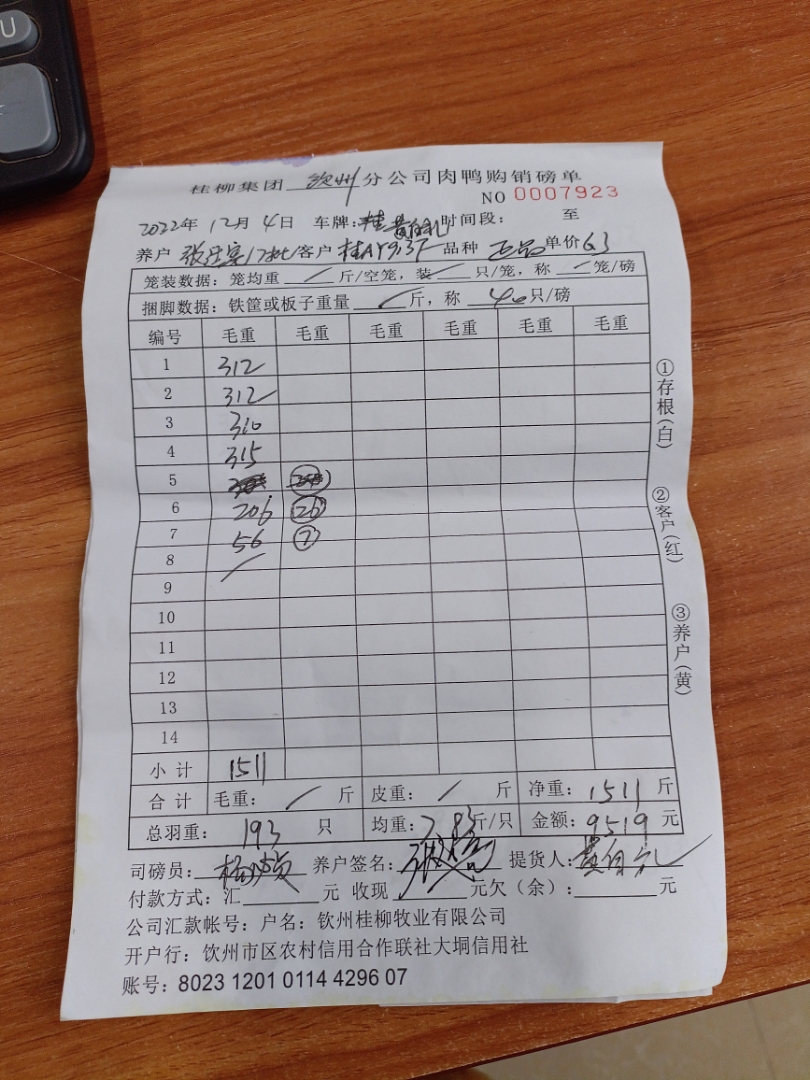 U
桂柳集团 钦州 分公司肉鸭购销磅单
NO 0007923
2022年 12月 4日 车牌: 桂 黄自礼 时间段: 至
养户 张廷 客户 桂AY 品种 正品 单价 63
笼装数据: 笼均重 / 斤/空笼, 装 / 只/笼, 称 / 笼/磅
捆脚数据: 铁筐或板子重量 / 斤, 称 40 只/磅
编号 毛重 毛重 毛重 毛重 毛重 毛重
1 312
2 312
3 310
4 315
5
6 206 26
7 56 7
8 /
9
10
11
12
13
14
小计 1511
合计 毛重: / 斤 皮重: / 斤 净重: 1511 斤
总羽重: 193 只 均重: 7.83 斤/只 金额: 9519 元
司磅员: 杨 养户签名: 张 提货人: 黄自礼
付款方式: 汇 元 收现 元欠(余): 元
公司汇款帐号: 户名: 钦州桂柳牧业有限公司
开户行: 饮州市区农村信用合作联社大垌信用社
账号: 8023 1201 0114 4296 07
①存根(白)
②客户(红)
③养户(黄)